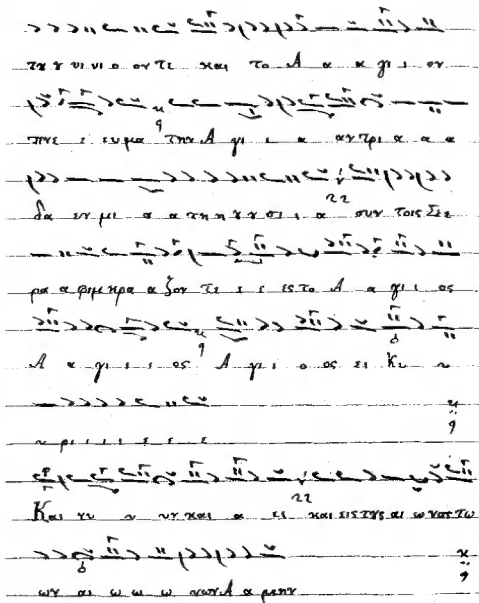 τȣ ȣ υι υι ο ον τε και το Α α α γι ι ον
πνε ε ευμα την Α γι ι α αν τρι α α α
δα εν μι α α τη η ȣ ν σι ι α συν τοις Σε ε
ρα α φιμ κρα α ζον τε ε ε ες το Α α γι ι ος
Α α γι ι ι ος Α γι ι ο ος ει Κυ υ
υ ρι ι ι ι ε ε ε
Και νυ υ υν και α ει και εις τȣς αι ω νας τω
ων αι ω ω ω νων Α α μην